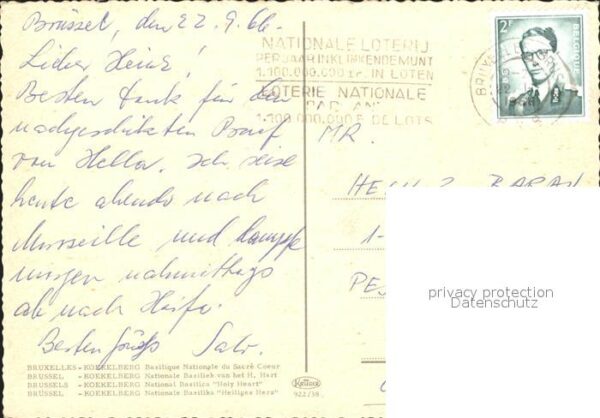 Brüssel, den 22.9.66.
Lieber Heinz!
Besten Dank für den
nachgeschickten Brief
von Hella. Ich reise
heute abends nach
Marseille und dampfe
morgen nachmittags
ab nach Haifa.
Besten Gruß
NATIONALE LOTERIJ
PER JAAR IN KLINKENDE MUNT
1.100.000.000 Fr. IN LOTEN
LOTERIE NATIONALE
PAR AN
1.100.000.000 F. DE LOTS
2F
BELGIQUE
MR.
HEINZ BARAN
1-
privacy protection
Datenschutz
BRUXELLES - KOEKELBERG Basilique Nationale du Sacré Coeur
BRUSSEL - KOEKELBERG Nationale Basiliek van het H. Hart
BRUSSELS - KOEKELBERG National Basilica "Holy Heart"
BRÜSSEL - KOEKELBERG Nationale Basilika "Heiliges Herz"
922/58